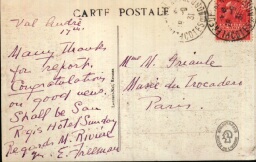 CARTE POSTALE
Val André
17th
Many thanks
for report.
Congratulations
on good news.
Shall be San
Regis Hotel Sunday
Regards M. Rivière
E. Freeman
Mme M. Griaule
Musée du Trocadero
Paris